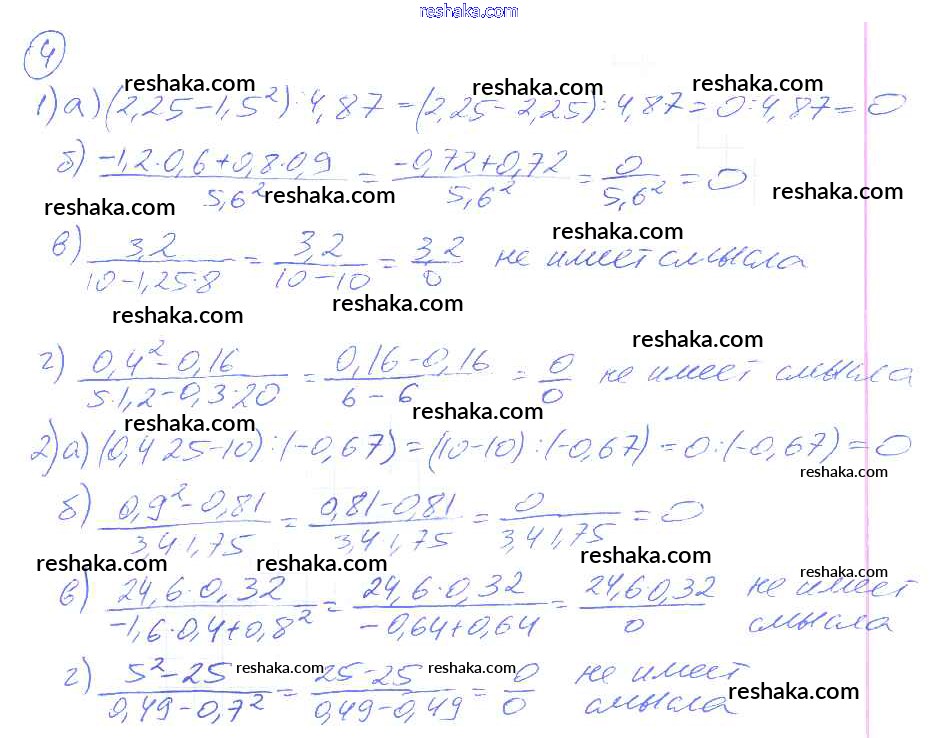 reshaka.com
4
reshaka.com reshaka.com
1) а) (2,25 - 1,5²) : 4,87 = (2,25 - 2,25) : 4,87 = 0 : 4,87 = 0
reshaka.com
б) (-1,2·0,6+0,8·0,9)/5,6² = (-0,72+0,72)/5,6² = 0/5,6² = 0
reshaka.com reshaka.com reshaka.com
reshaka.com
в) 3,2/(10-1,25·8) = 3,2/(10-10) = 3,2/0 не имеет смысла
reshaka.com reshaka.com
reshaka.com
г) (0,4² - 0,16)/(5·1,2-0,3·20) = (0,16-0,16)/(6-6) = 0/0 не имеет смысла
reshaka.com reshaka.com
2) а) (0,4 25-10) : (-0,67) = (10-10) : (-0,67) = 0 : (-0,67) = 0
reshaka.com
б) (0,9² - 0,81)/(3,4 1,75) = (0,81-0,81)/(3,4 1,75) = 0/(3,4 1,75) = 0
reshaka.com reshaka.com reshaka.com
reshaka.com
в) (24,6·0,32)/(-1,6·0,4+0,8²) = (24,6·0,32)/(-0,64+0,64) = (24,6 0,32)/0 не имеет
смысла
reshaka.com reshaka.com
г) (5² - 25)/(0,49-0,7²) = (25-25)/(0,49-0,49) = 0/0 не имеет
смысла
reshaka.com